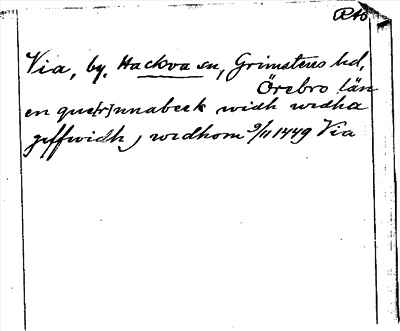 RAö
Via, by, Hackva sn, Grimstens hd,
Örebro län
en que[r]nnabeck widh wedha
giffwidh, wedhom 9/11 1449 Via